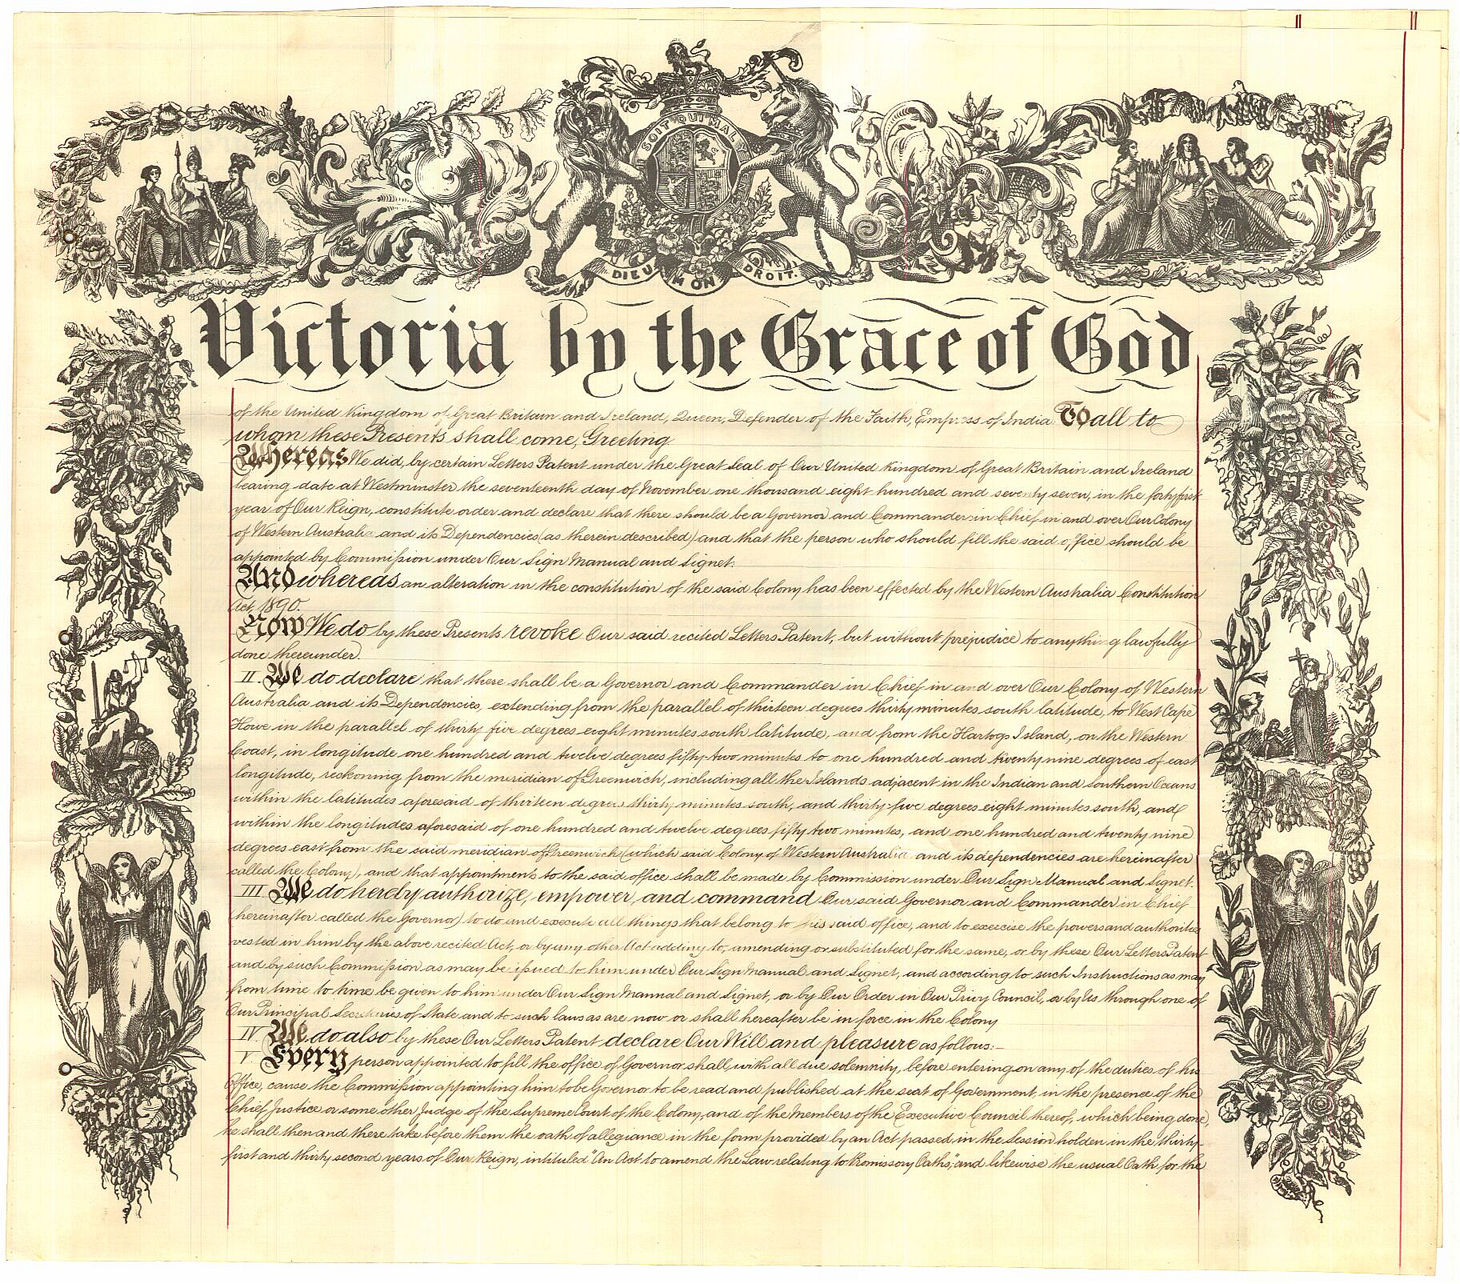 SOIT QUI MAL
DIEU ET MON DROIT.
Victoria by the Grace of God
of the United Kingdom of Great Britain and Ireland, Queen, Defender of the Faith, Empress of India To all to
whom these Presents shall come, Greeting
Whereas We did, by certain Letters Patent under the Great Seal of Our United Kingdom of Great Britain and Ireland
bearing date at Westminster the seventeenth day of November one thousand eight hundred and seventy seven, in the forty first
year of Our Reign, constitute order and declare that there should be a Governor and Commander in Chief in and over Our Colony
of Western Australia and its Dependencies (as therein described) and that the person who should fill the said office should be
appointed by Commission under Our Sign Manual and Signet.
And whereas an alteration in the constitution of the said Colony has been effected by the Western Australia Constitution
Act, 1890.
Now We do by these Presents revoke Our said recited Letters Patent, but without prejudice to anything lawfully
done thereunder.
II. We do declare that there shall be a Governor and Commander in Chief in and over Our Colony of Western
Australia and its Dependencies, extending from the parallel of thirteen degrees thirty minutes south latitude, to West Cape
Howe in the parallel of thirty five degrees eight minutes south latitude, and from the Hartogs Island, on the Western
Coast, in longitude one hundred and twelve degrees fifty-two minutes to one hundred and twenty nine degrees of east
longitude, reckoning from the meridian of Greenwich, including all the Islands adjacent in the Indian and Southern Oceans
within the latitudes aforesaid of thirteen degrees thirty minutes south, and thirty-five degrees eight minutes south, and
within the longitudes aforesaid of one hundred and twelve degrees fifty two minutes, and one hundred and twenty nine
degrees east from the said meridian of Greenwich (which said Colony of Western Australia and its dependencies are hereinafter
called the Colony), and that appointments to the said office shall be made by Commission under Our Sign Manual and Signet.
III We do hereby authorize, empower, and command Our said Governor and Commander in Chief
(hereinafter called the Governor) to do and execute all things that belong to his said office, and to exercise the powers and authorities
vested in him by the above recited Act, or by any other Act adding to, amending or substituted for the same, or by these Our Letters Patent
and by such Commission as may be issued to him under Our Sign Manual and Signet, and according to such Instructions as may
from time to time be given to him under Our Sign Manual and Signet, or by Our Order in Our Privy Council, or by Us through one of
Our Principal Secretaries of State and to such laws as are now or shall hereafter be in force in the Colony
IV We do also by these Our Letters Patent declare Our Will and pleasure as follows:—
V Every person appointed to fill the office of Governor shall with all due solemnity, before entering on any of the duties of his
Office, cause the Commission appointing him to be Governor to be read and published at the seat of Government, in the presence of the
Chief Justice or some other Judge of the Supreme Court of the Colony, and of the Members of the Executive Council thereof, which being done,
he shall then and there take before them the oath of allegiance in the form provided by an Act passed in the Session holden in the thirty-
first and thirty second years of Our Reign, intituled "An Act to amend the Law relating to Promissory Oaths;" and likewise the usual Oath for the